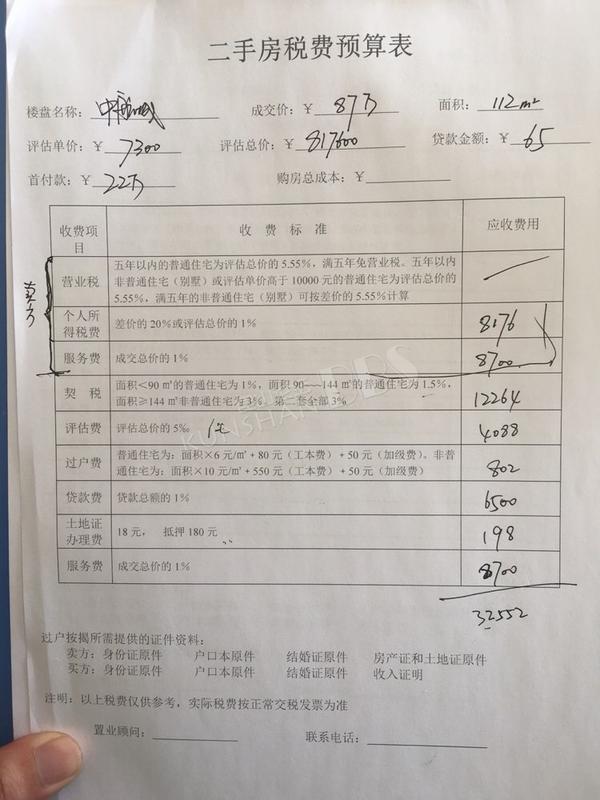 二手房税费预算表
楼盘名称： 中航城 成交价：￥ 87万 面积： 112m²
评估单价：￥ 7300 评估总价：￥ 817600 贷款金额：￥ 65
首付款：￥ 22万 购房总成本：￥
收费项目 收 费 标 准 应收费用
卖方
营业税 五年以内的普通住宅为评估总价的 5.55%，满五年免营业税。五年以内
非普通住宅（别墅）或评估单价高于 10000 元的普通住宅为评估总价的
5.55%，满五年的非普通住宅（别墅）可按差价的 5.55%计算
个人所得税费 差价的 20%或评估总价的 1% 8176
服务费 成交总价的 1% 8700
契 税 面积＜90 ㎡的普通住宅为 1%，面积 90——144 ㎡的普通住宅为 1.5%，
面积≥144 ㎡非普通住宅为 3%，第二套全部 3% 12264
评估费 评估总价的 5‰ 4088
过户费 普通住宅为：面积×6 元/㎡+80 元（工本费）+50 元（加级费）。非普
通住宅为：面积×10 元/㎡+550 元（工本费）+50 元（加级费） 802
贷款费 贷款总额的 1% 6500
土地证办理费 18 元， 抵押 180 元 198
服务费 成交总价的 1% 8700
32552
KUNSHAN BBS
过户按揭所需提供的证件资料：
卖方：身份证原件 户口本原件 结婚证原件 房产证和土地证原件
买方：身份证原件 户口本原件 结婚证原件 收入证明
注明：以上税费仅供参考，实际税费按正常交税发票为准
置业顾问： 联系电话：